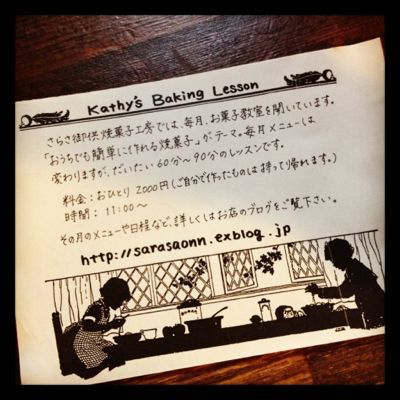 Kathy's Baking Lesson
さらさ御供焼菓子工房では、毎月、お菓子教室を開いています。
「おうちでも簡単に作れる焼菓子」がテーマ。毎月メニューは
変わりますが、だいたい60分〜90分のレッスンです。
料金：おひとり 2000円（ご自分で作ったものは持って帰れます。）
時間：11:00〜
その月のメニューや日程など、詳しくはお店のブログをご覧下さい。
http://sarasaonn.exblog.jp
SUGAR